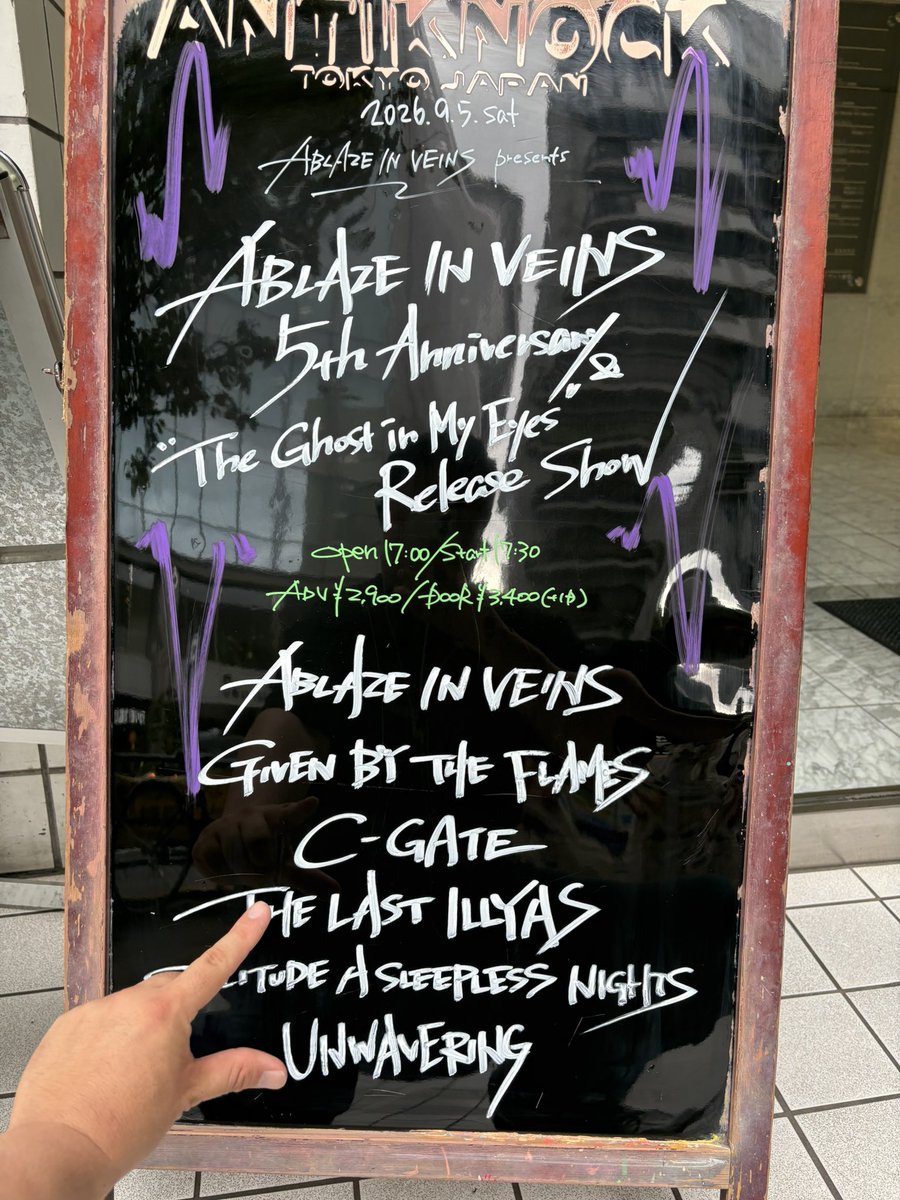 ANTIKNOCK
TOKYO JAPAN
2026.9.5.sat
ABLAZE IN VEINS presents
ABLAZE IN VEINS
5th Anniversary &
"The Ghost in My Eyes"
Release Show
open 17:00/Start 17:30
ADV ¥2,900/DOOR ¥3,400(+1D)
ABLAZE IN VEINS
GIVEN BY THE FLAMES
C-GATE
THE LAST ILLYAS
A SLEEPLESS NIGHTS
UNWAVERING